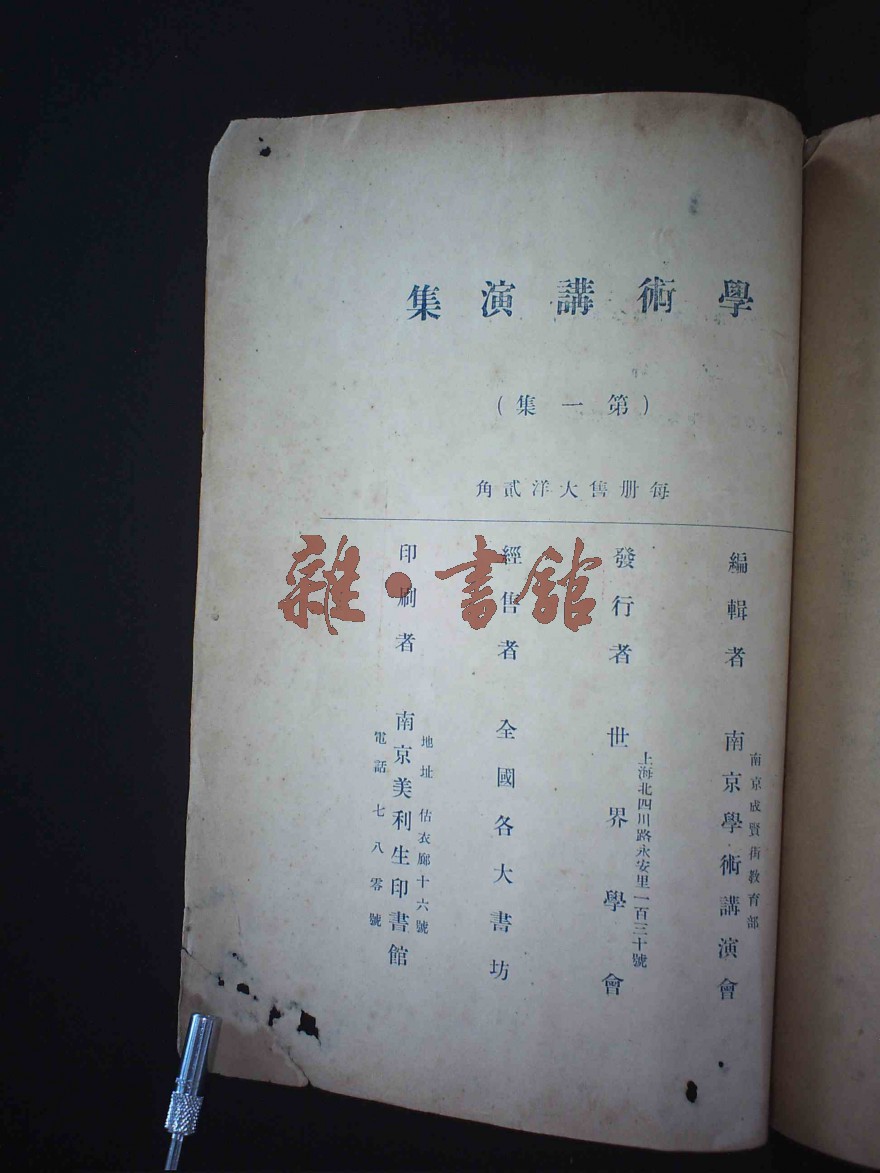 學術講演集
（第一集）
每册售大洋貳角
編輯者 南京學術講演會
南京成賢街教育部
發行者 世界學會
上海北四川路永安里一百三十號
經售者 全國各大書坊
印刷者 南京美利生印書館
地址 估衣廊十六號
電話 七八零號
雜·書館